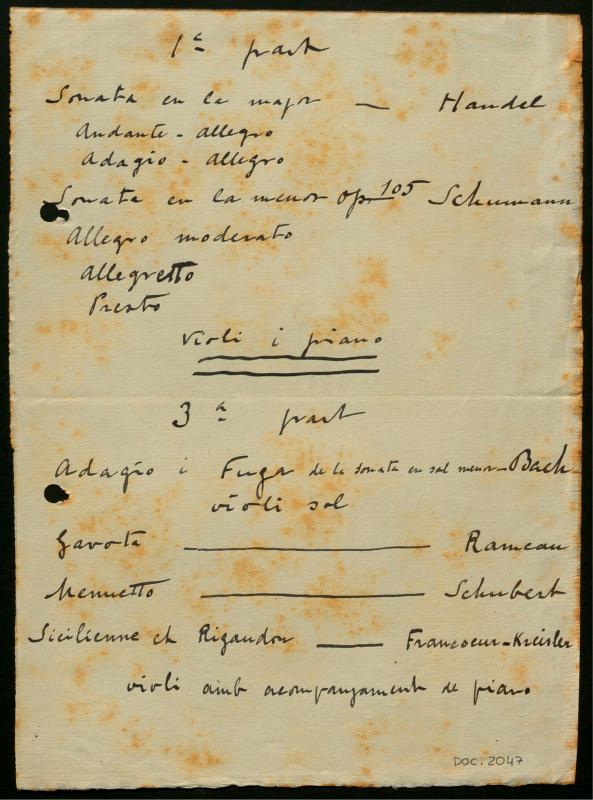 1ª part
Sonata en la major — Handel
Andante - allegro
Adagio - allegro
Sonata en la menor op. 105 Schumann
Allegro moderato
Allegretto
Presto
Violi i piano
3ª part
Adagio i Fuga de la sonata en sol menor - Bach
violi sol
Gavota — Rameau
Menuetto — Schubert
Sicilienne et Rigaudon — Francoeur-Kreisler
violi amb acompanyament de piano
DOC. 2047